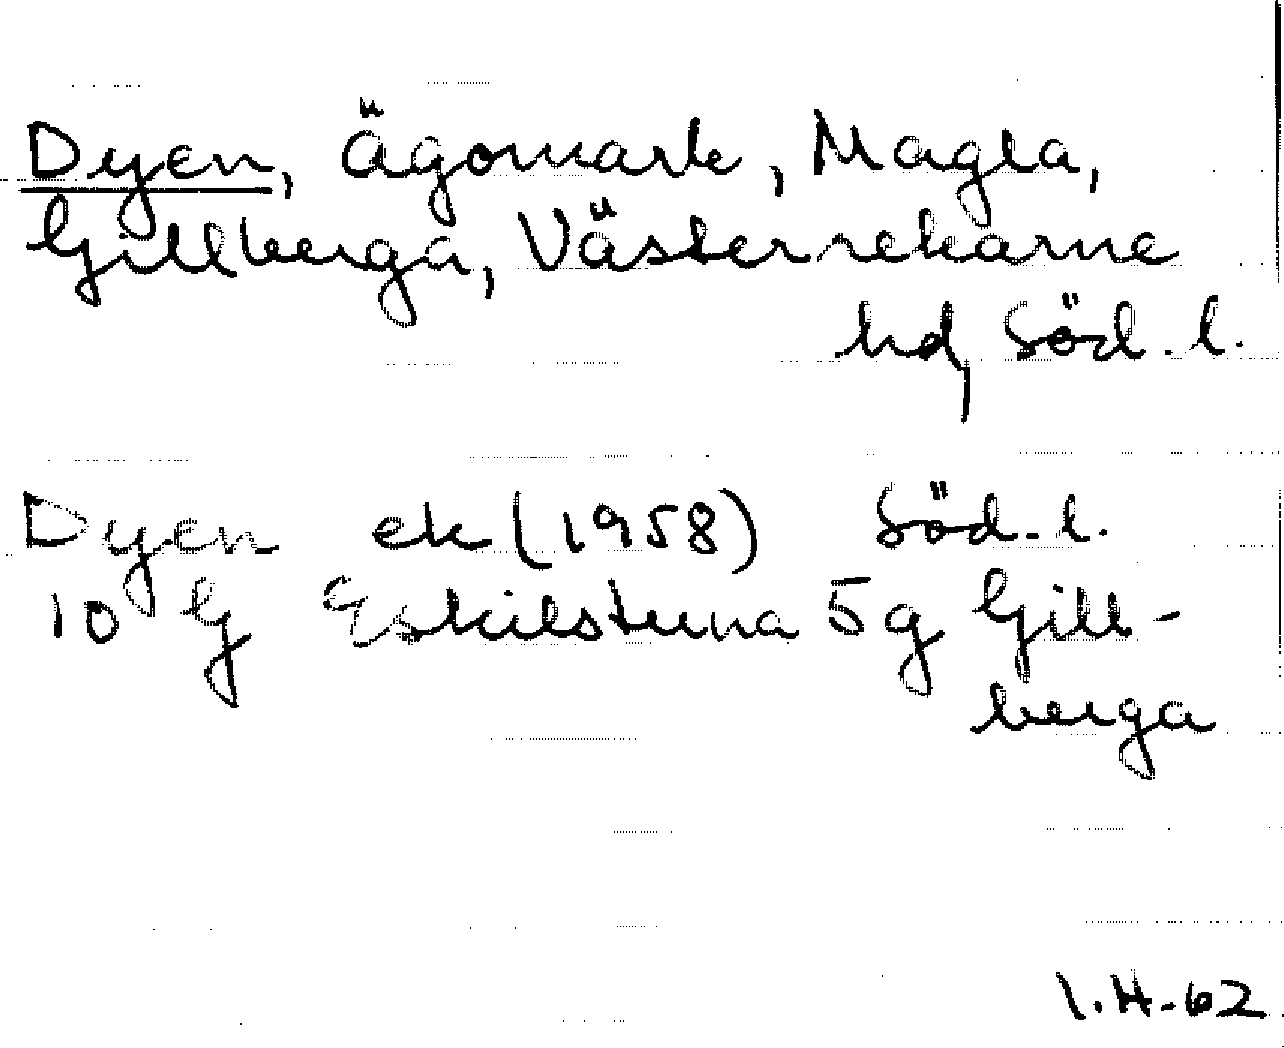 Dyen, Ägomark, Magla,
Gillberga, Västerrekarne
hd, Söd. l.
Dyen ek (1958) Söd. l.
10 G Eskilstuna 5g Gill-
berga
I.H.-62